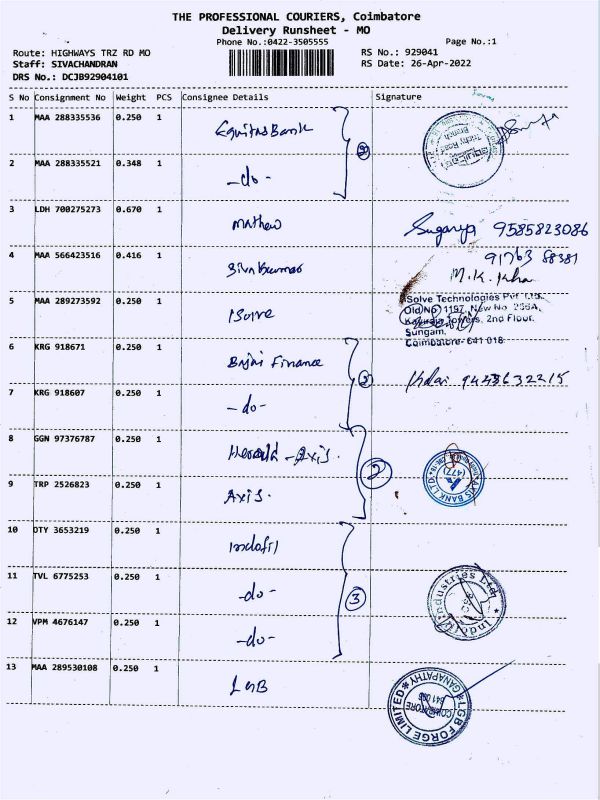 THE PROFESSIONAL COURIERS, Coimbatore
Delivery Runsheet - MO
Phone No.:0422-3505555
Page No.:1
Route: HIGHWAYS TRZ RD MO
RS No.: 929041
Staff: SIVACHANDRAN
RS Date: 26-Apr-2022
DRS No.: DCJB92904101
S No Consignment No Weight PCS Consignee Details Signature
1 MAA 288335536 0.250 1 Equitas Bank
Trichy Road
Branch
2 MAA 288335521 0.348 1 -do-
2
3 LDH 700275273 0.670 1 Mathew Suganya 9585823086
4 MAA 566423516 0.416 1 Sivakumar 91763 88381
M.K.
5 MAA 289273592 0.250 1 iSolve
iSolve Technologies Pvt Ltd.
Old No 1157, New No 256A,
Towers, 2nd Floor,
Sungam,
Coimbatore- 641 018
6 KRG 918671 0.250 1 Bajaj Finance
7 KRG 918607 0.250 1 -do-
8 GGN 97376787 0.250 1 Herald - Axis.
2
AXIS BANK LTD.
(477)
9 TRP 2526823 0.250 1 Axis.
10 OTY 3653219 0.250 1 Indofil
11 TVL 6775253 0.250 1 -do-
3
Indofil Industries Ltd
12 VPM 4676147 0.250 1 -do-
13 MAA 289530108 0.250 1 LGB
LGB FORGE LIMITED
GANAPATHY
COIMBATORE
641 006